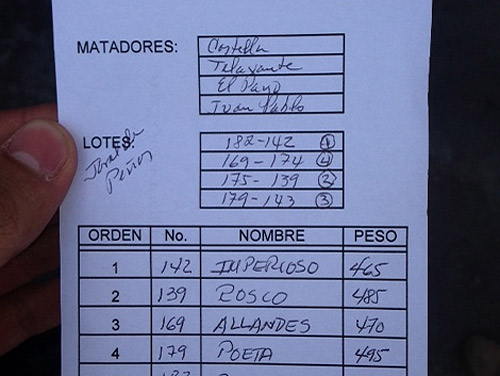 MATADORES:
Castella
Talavante
El Payo
Juan Pablo
LOTES:
182-142 ①
169-174 ④
175-139 ②
179-143 ③
Peñas
ORDEN No. NOMBRE PESO
1 142 IMPERIOSO 465
2 139 ROSCO 485
3 169 ALLANDES 470
4 179 POETA 495